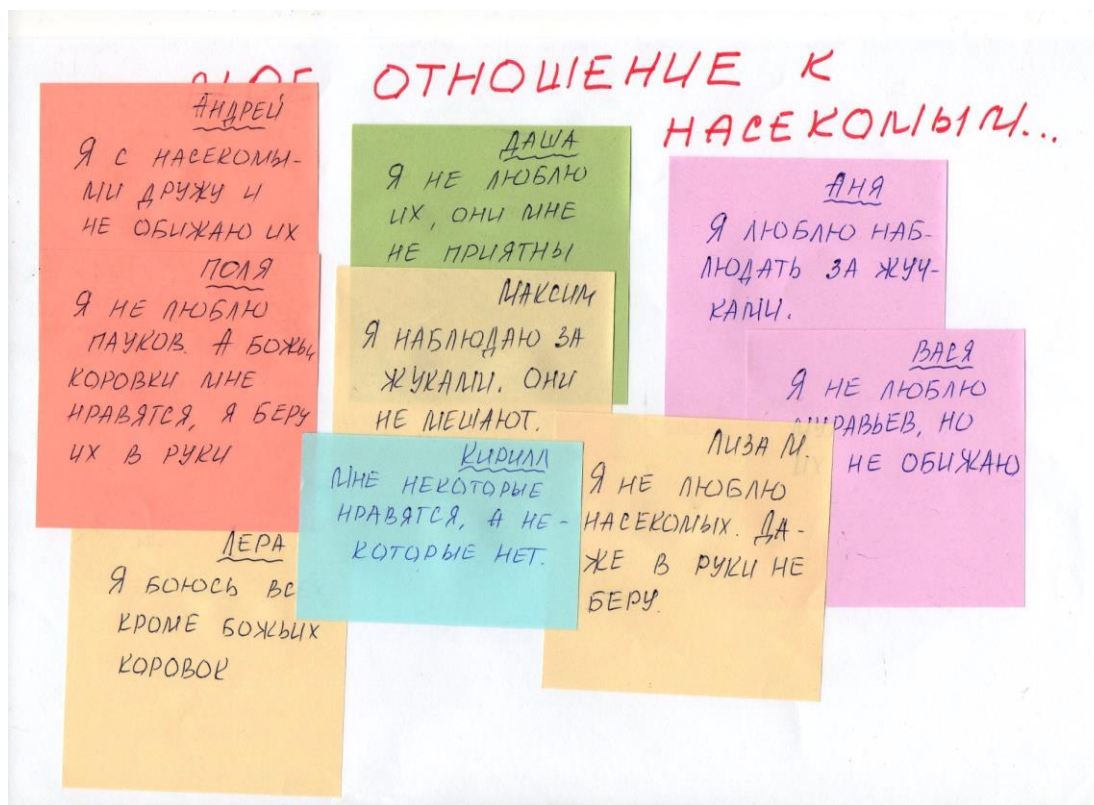 МОЕ ОТНОШЕНИЕ К
НАСЕКОМЫМ...
АНДРЕЙ
Я С НАСЕКОМЫ-
МИ ДРУЖУ И
НЕ ОБИЖАЮ ИХ
ПОЛЯ
Я НЕ ЛЮБЛЮ
ПАУКОВ. А БОЖЬИ
КОРОВКИ МНЕ
НРАВЯТСЯ, Я БЕРУ
ИХ В РУКИ
ЛЕРА
Я БОЮСЬ
КРОМЕ БОЖЬИХ
КОРОВОК
ДАША
Я НЕ ЛЮБЛЮ
ИХ, ОНИ МНЕ
НЕ ПРИЯТНЫ
МАКСИМ
Я НАБЛЮДАЮ ЗА
ЖУКАМИ. ОНИ
НЕ МЕШАЮТ.
КИРИЛЛ
МНЕ НЕКОТОРЫЕ
НРАВЯТСЯ, А НЕ-
КОТОРЫЕ НЕТ.
АНЯ
Я ЛЮБЛЮ НАБ-
ЛЮДАТЬ ЗА ЖУЧ-
КАМИ.
ВАСЯ
Я НЕ ЛЮБЛЮ
МУРАВЬЕВ, НО
ИХ НЕ ОБИЖАЮ
ЛИЗА М.
Я НЕ ЛЮБЛЮ
НАСЕКОМЫХ. ДА-
ЖЕ В РУКИ НЕ
БЕРУ.